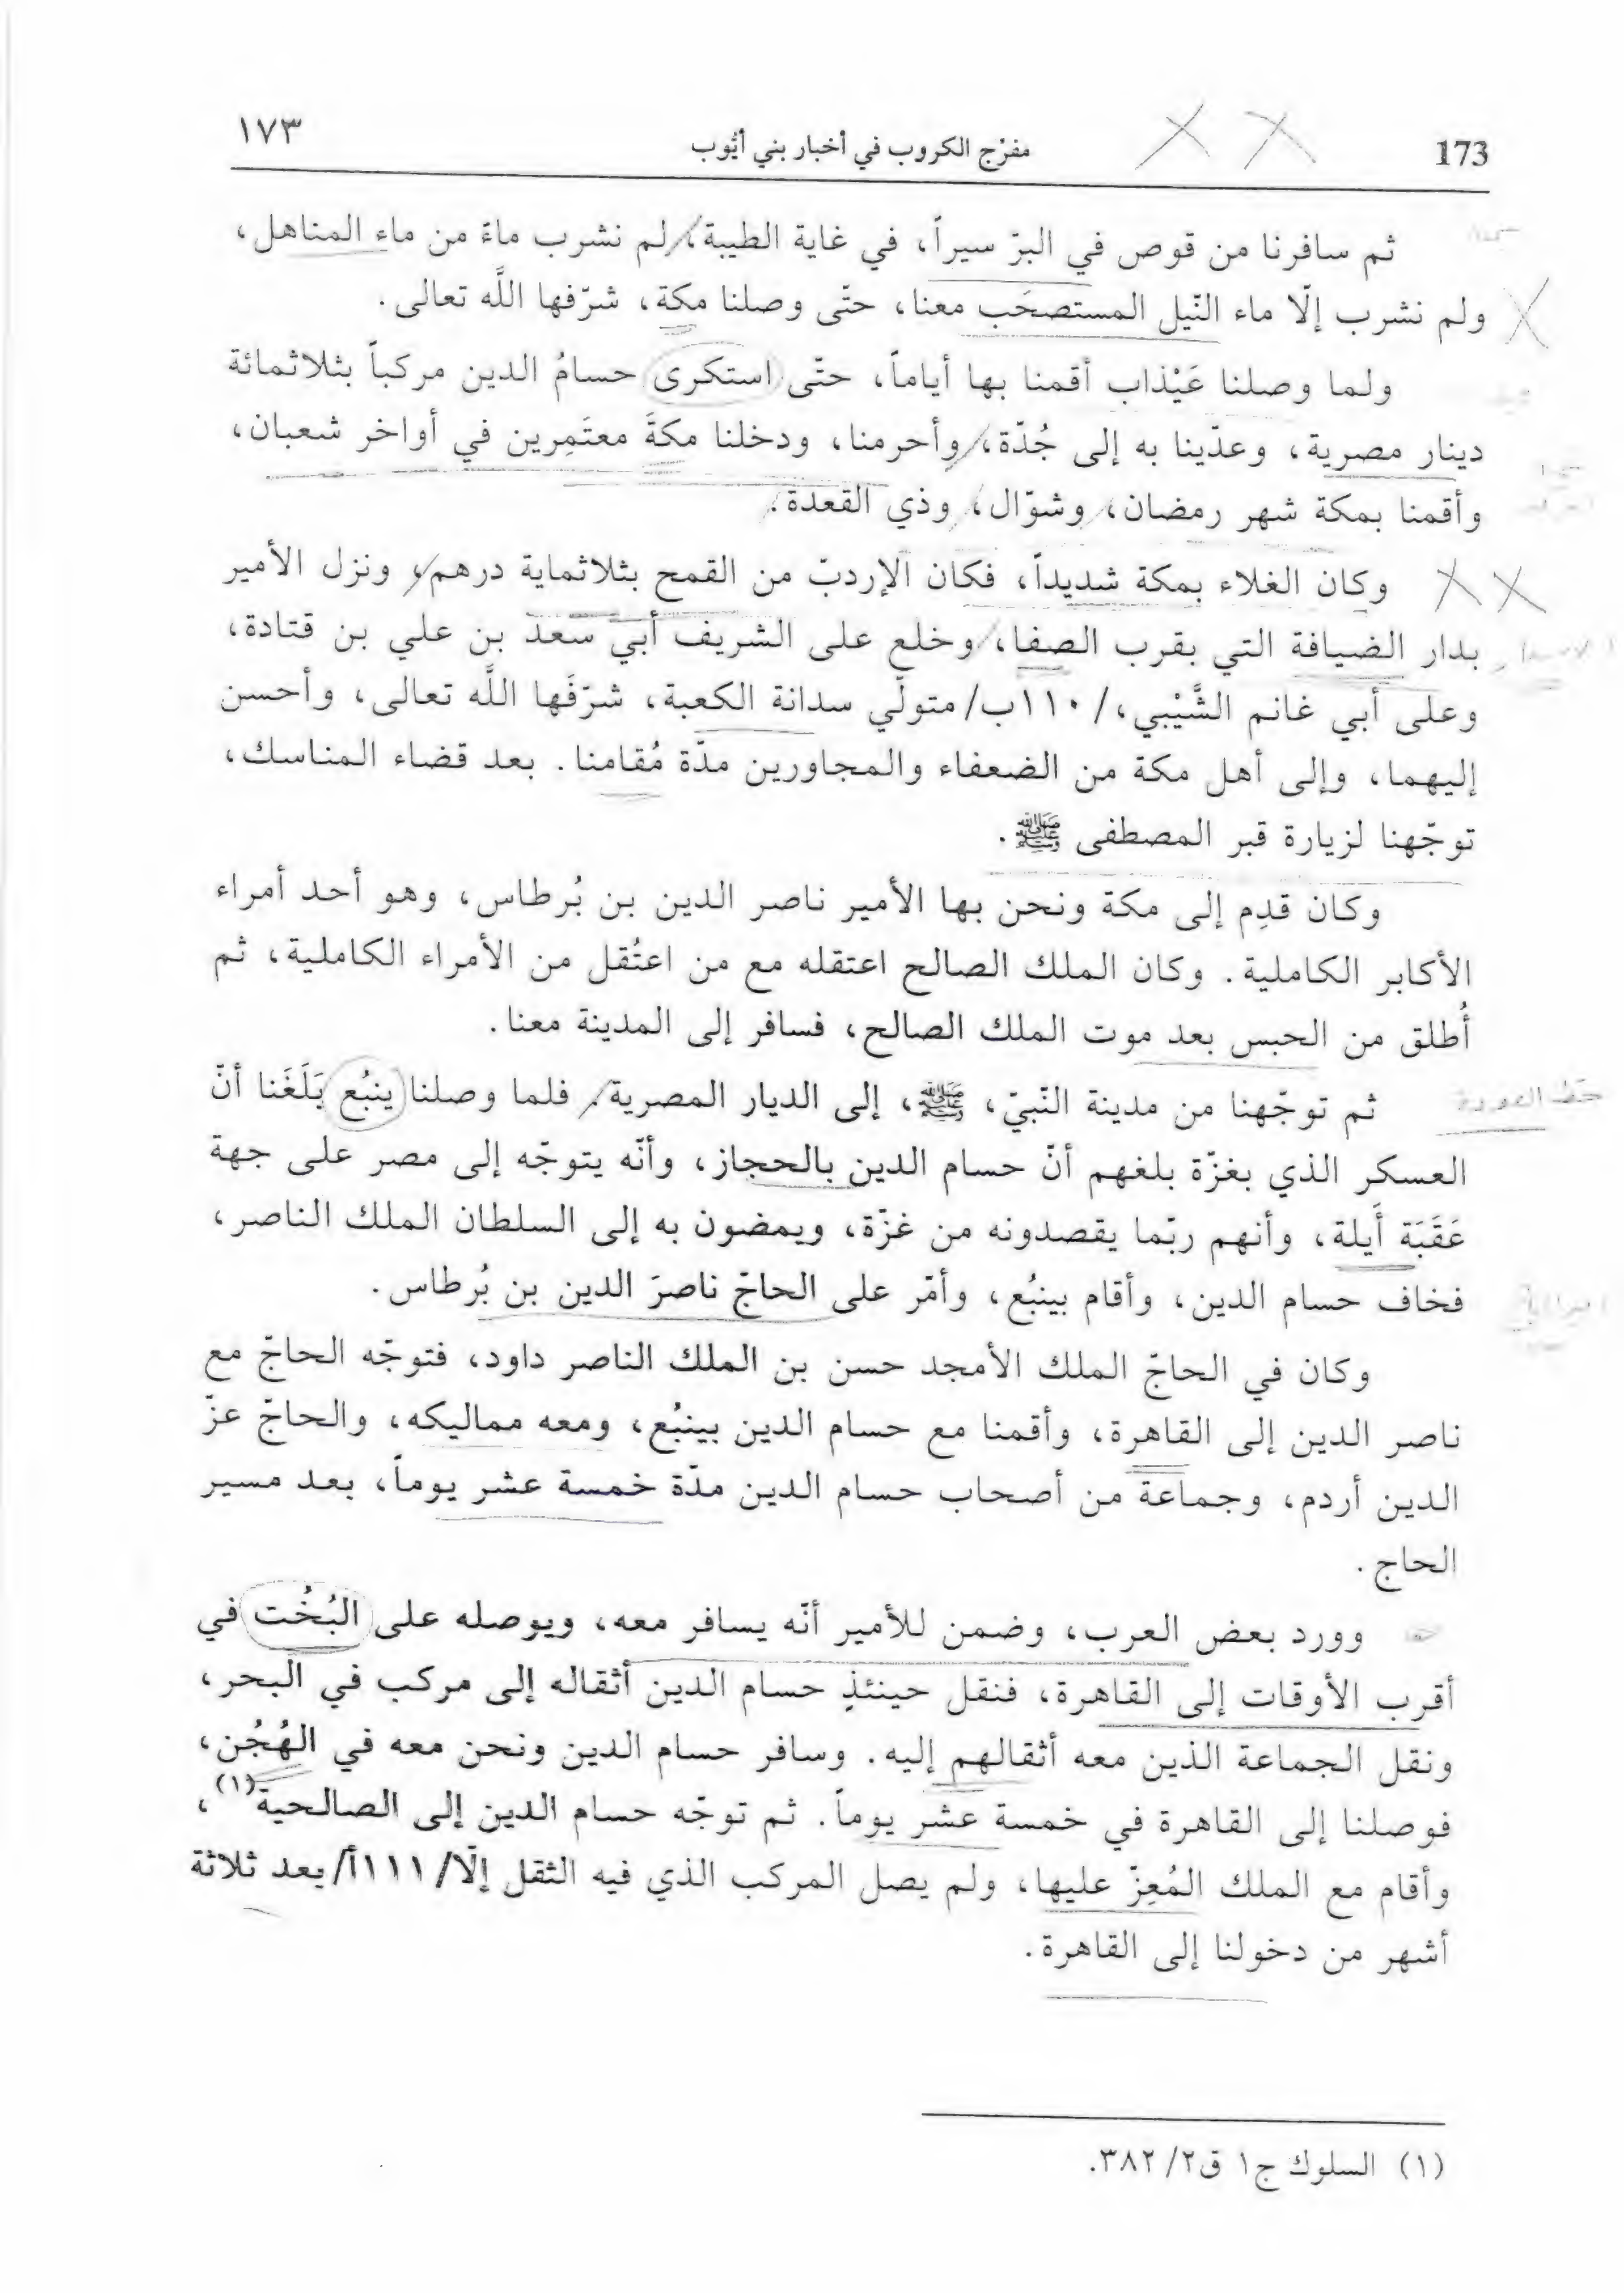 173 مفرّج الكروب في أخبار بني أيّوب ١٧٣
ثم سافرنا من قوص في البرّ سيراً، في غاية الطيبة، لم نشرب ماءً من ماء المناهل،
ولم نشرب إلّا ماء النّيل المستصحَب معنا، حتّى وصلنا مكة، شرّفها اللَّه تعالى.
ولما وصلنا عَيْذاب أقمنا بها أياماً، حتّى استكرى حسامُ الدين مركباً بثلاثمائة
دينار مصرية، وعدّينا به إلى جُدّة، وأحرمنا، ودخلنا مكةَ معتَمِرين في أواخر شعبان،
وأقمنا بمكة شهر رمضان، وشوّال، وذي القعدة.
وكان الغلاء بمكة شديداً، فكان الإردبّ من القمح بثلاثماية درهم، ونزل الأمير
بدار الضيافة التي بقرب الصفا، وخلع على الشريف أبي سعد بن علي بن قتادة،
وعلى أبي غانم الشَّيْبي، /١١٠ب/ متولّي سدانة الكعبة، شرّفَها اللَّه تعالى، وأحسن
إليهما، وإلى أهل مكة من الضعفاء والمجاورين مدّة مُقامنا. بعد قضاء المناسك،
توجّهنا لزيارة قبر المصطفى ﷺ.
وكان قدِم إلى مكة ونحن بها الأمير ناصر الدين بن بُرطاس، وهو أحد أمراء
الأكابر الكاملية. وكان الملك الصالح اعتقله مع من اعتُقل من الأمراء الكاملية، ثم
أُطلق من الحبس بعد موت الملك الصالح، فسافر إلى المدينة معنا.
ثم توجّهنا من مدينة النّبيّ، ﷺ، إلى الديار المصرية. فلما وصلنا ينبُع بَلَغَنا أنّ
العسكر الذي بغزّة بلغهم أنّ حسام الدين بالحجاز، وأنّه يتوجّه إلى مصر على جهة
عَقَبَة أَيلة، وأنهم ربّما يقصدونه من غزّة، ويمضون به إلى السلطان الملك الناصر،
فخاف حسام الدين، وأقام بينبُع، وأمّر على الحاجّ ناصرَ الدين بن بُرطاس.
وكان في الحاجّ الملك الأمجد حسن بن الملك الناصر داود، فتوجّه الحاجّ مع
ناصر الدين إلى القاهرة، وأقمنا مع حسام الدين بينبُع، ومعه مماليكه، والحاجّ عزّ
الدين أردم، وجماعة من أصحاب حسام الدين مدّة خمسة عشر يوماً، بعد مسير
الحاج.
وورد بعض العرب، وضمن للأمير أنّه يسافر معه، ويوصله على البُخُت في
أقرب الأوقات إلى القاهرة، فنقل حينئذٍ حسام الدين أثقاله إلى مركب في البحر،
ونقل الجماعة الذين معه أثقالهم إليه. وسافر حسام الدين ونحن معه في الهُجُن،
فوصلنا إلى القاهرة في خمسة عشر يوماً. ثم توجّه حسام الدين إلى الصالحية(١)،
وأقام مع الملك المُعِزّ عليها، ولم يصل المركب الذي فيه الثقل إلّا/ ١١١أ/ بعد ثلاثة
أشهر من دخولنا إلى القاهرة.
(١) السلوك ج١ ق٢/ ٣٨٢.